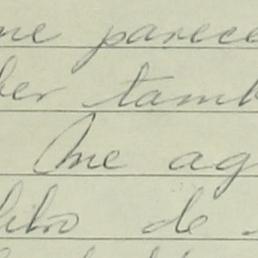 me parece
ber tamb
Me ag
libro de